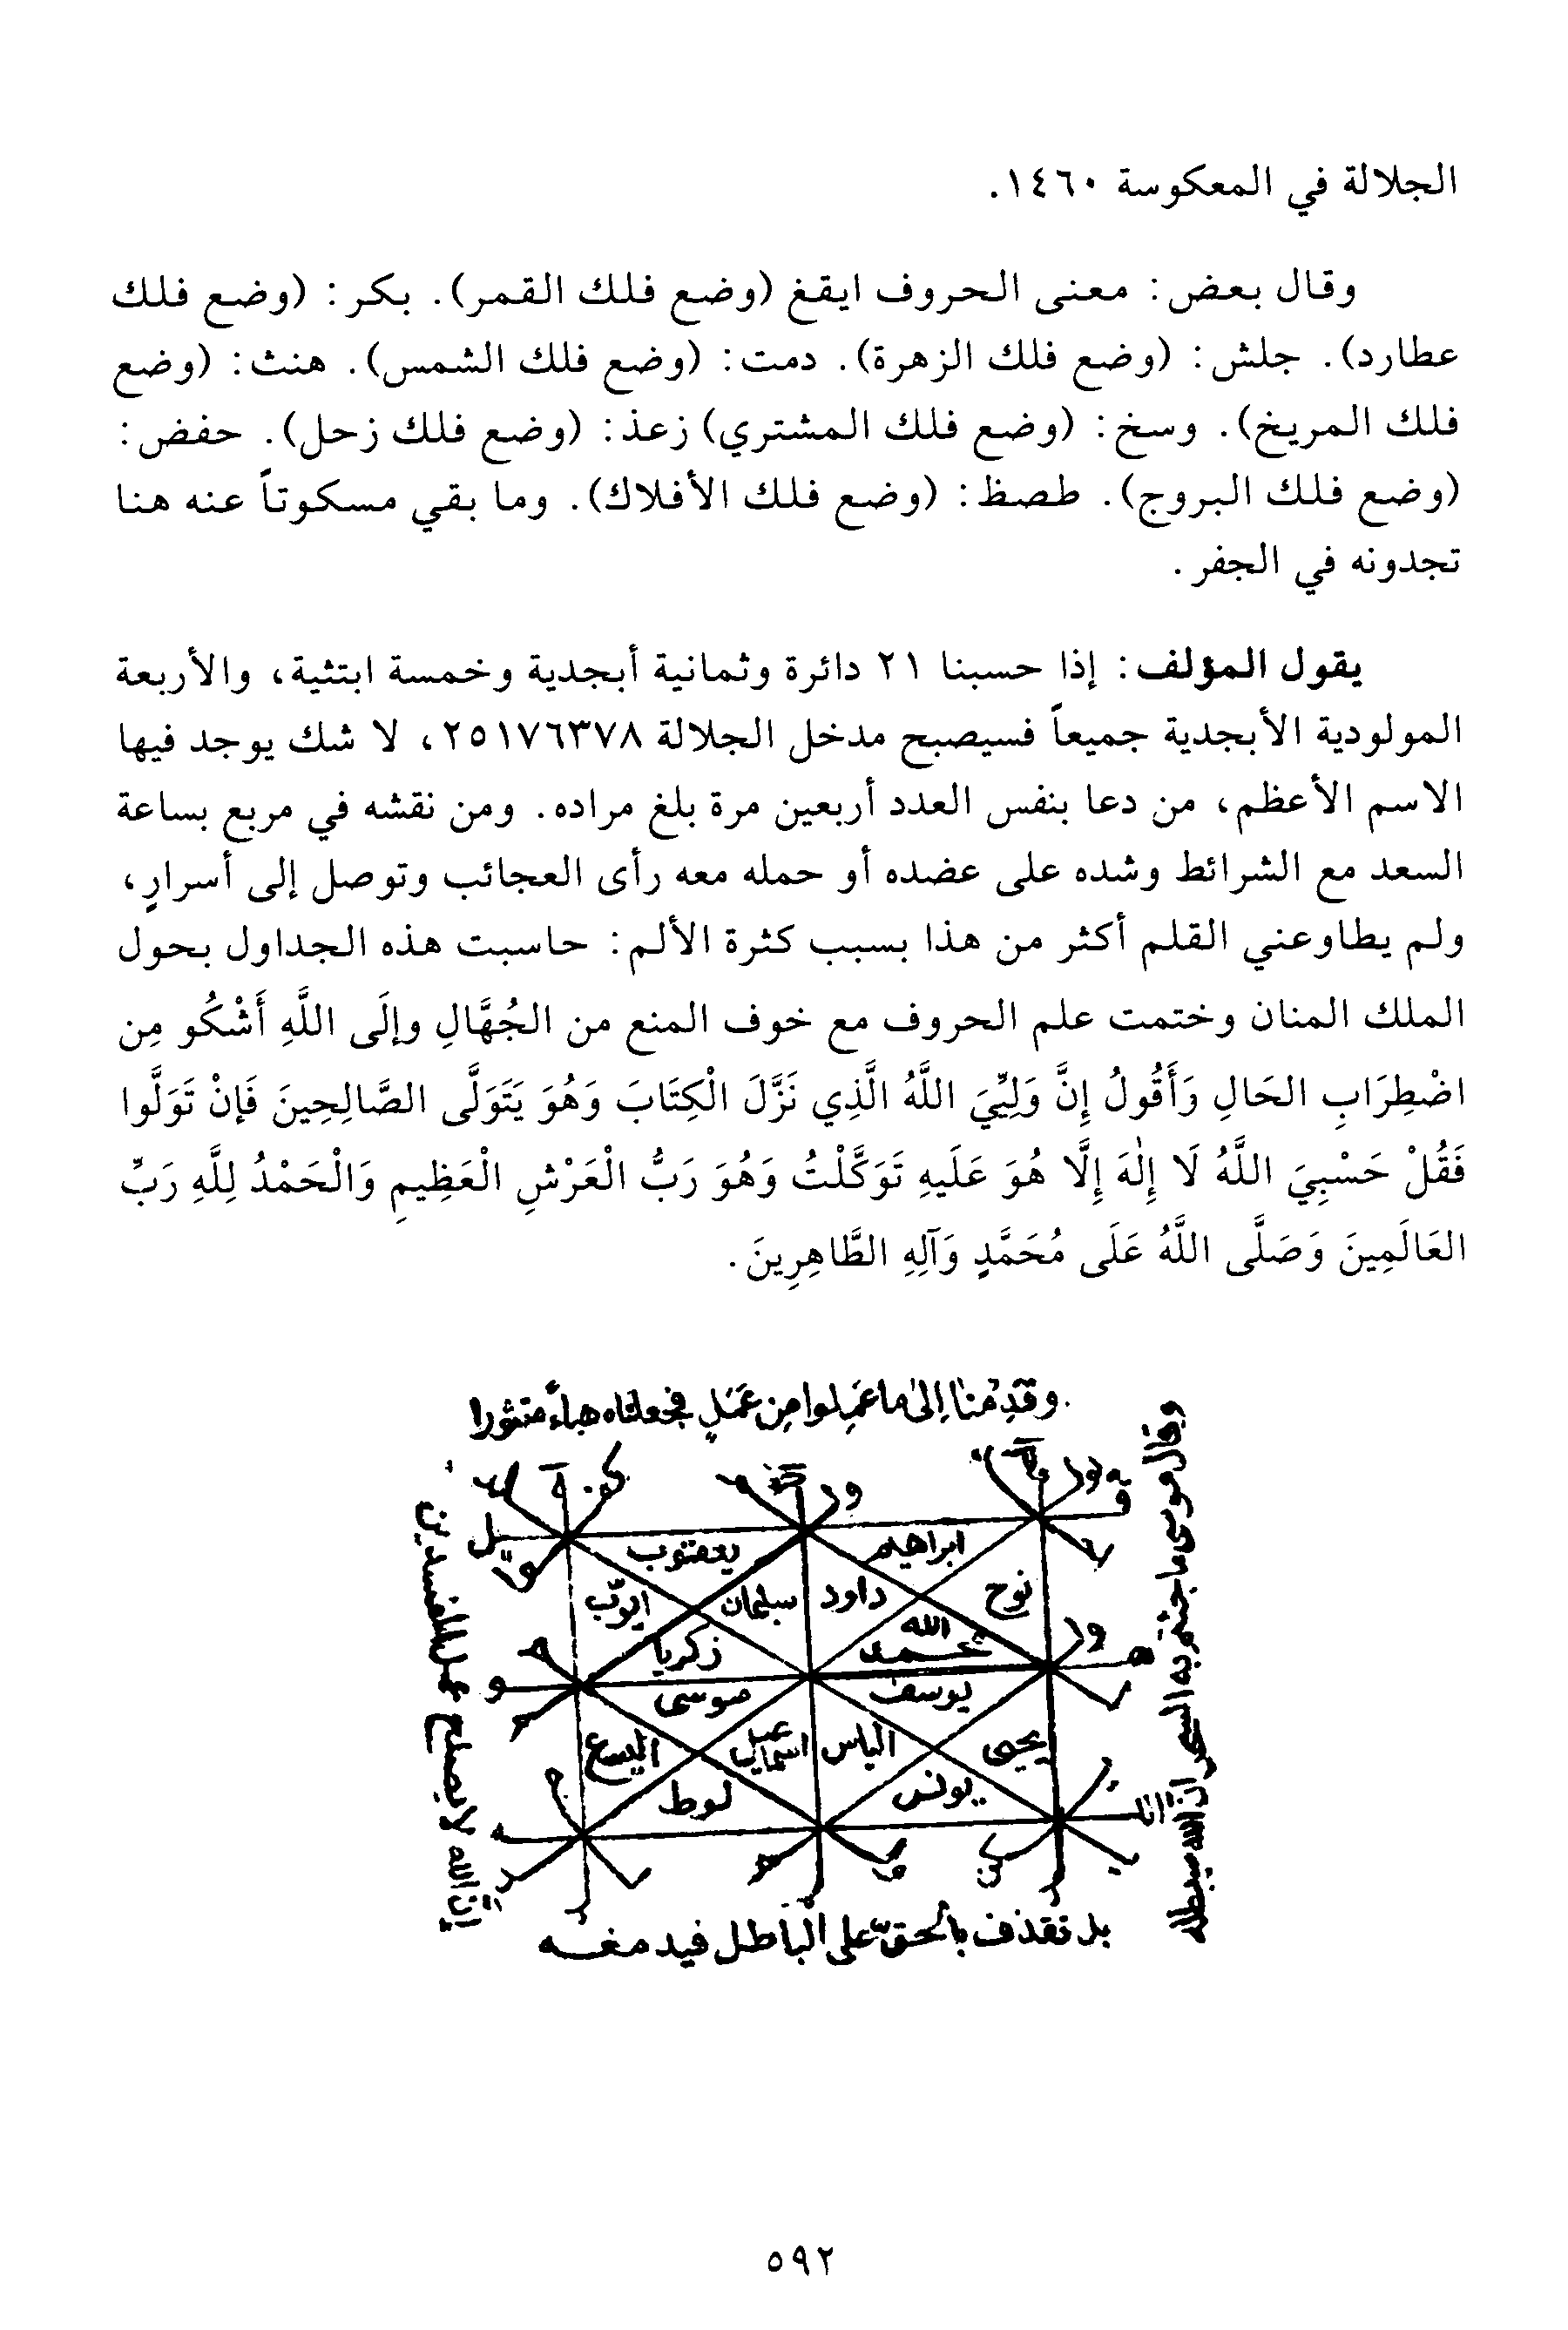 الجلالة في المعكوسة ١٤٦٠.
وقال بعض: معنى الحروف ايقغ (وضع فلك القمر). بكر: (وضع فلك
عطارد). جلش: (وضع فلك الزهرة). دمت: (وضع فلك الشمس). هنث: (وضع
فلك المريخ). وسخ: (وضع فلك المشتري) زعذ: (وضع فلك زحل). حفض:
(وضع فلك البروج). طصظ: (وضع فلك الأفلاك). وما بقي مسكوتاً عنه هنا
تجدونه في الجفر.
يقول المؤلف: إذا حسبنا ٢١ دائرة وثمانية أبجدية وخمسة ابتثية، والأربعة
المولودية الأبجدية جميعاً فسيصبح مدخل الجلالة ٢٥١٧٦٣٧٨، لا شك يوجد فيها
الاسم الأعظم، من دعا بنفس العدد أربعين مرة بلغ مراده. ومن نقشه في مربع بساعة
السعد مع الشرائط وشده على عضده أو حمله معه رأى العجائب وتوصل إلى أسرارٍ،
ولم يطاوعني القلم أكثر من هذا بسبب كثرة الألم: حاسبت هذه الجداول بحول
الملك المنان وختمت علم الحروف مع خوف المنع من الجُهَّالِ وإلَى اللَّهِ أَشْكُو مِن
اضْطِرَابِ الحَالِ وَأَقُولُ إِنَّ وَلِيِّيَ اللَّهُ الَّذِي نَزَّلَ الْكِتَابَ وَهُوَ يَتَوَلَّى الصَّالِحِينَ فَإنْ تَوَلَّوا
فَقُلْ حَسْبِيَ اللَّهُ لَا إِلٰهَ إِلَّا هُوَ عَلَيهِ تَوَكَّلْتُ وَهُوَ رَبُّ الْعَرْشِ الْعَظِيمِ وَالْحَمْدُ لِلَّهِ رَبِّ
العَالَمِينَ وَصَلَّى اللَّهُ عَلَى مُحَمَّدٍ وَآلِهِ الطَّاهِرِينَ.
وقَدِمْنا إلىٰ ما عَمِلوا مِن عَمَلٍ فجعلناه هباءً منثورا
وقال موسى ما جئتم به السحر إنّ الله سيبطله
ابراهيم
يعقوب
نوح
داود
سليمان
ايوّب
الله
محمد
زكريا
يوسف
موسى
يحيى
الياس
اسماعيل
اليسع
يونس
لوط
إنّ الله لا يصلح عمل المفسدين
بل نقذف بالحقّ على الباطل فيدمغه
٥٩٢